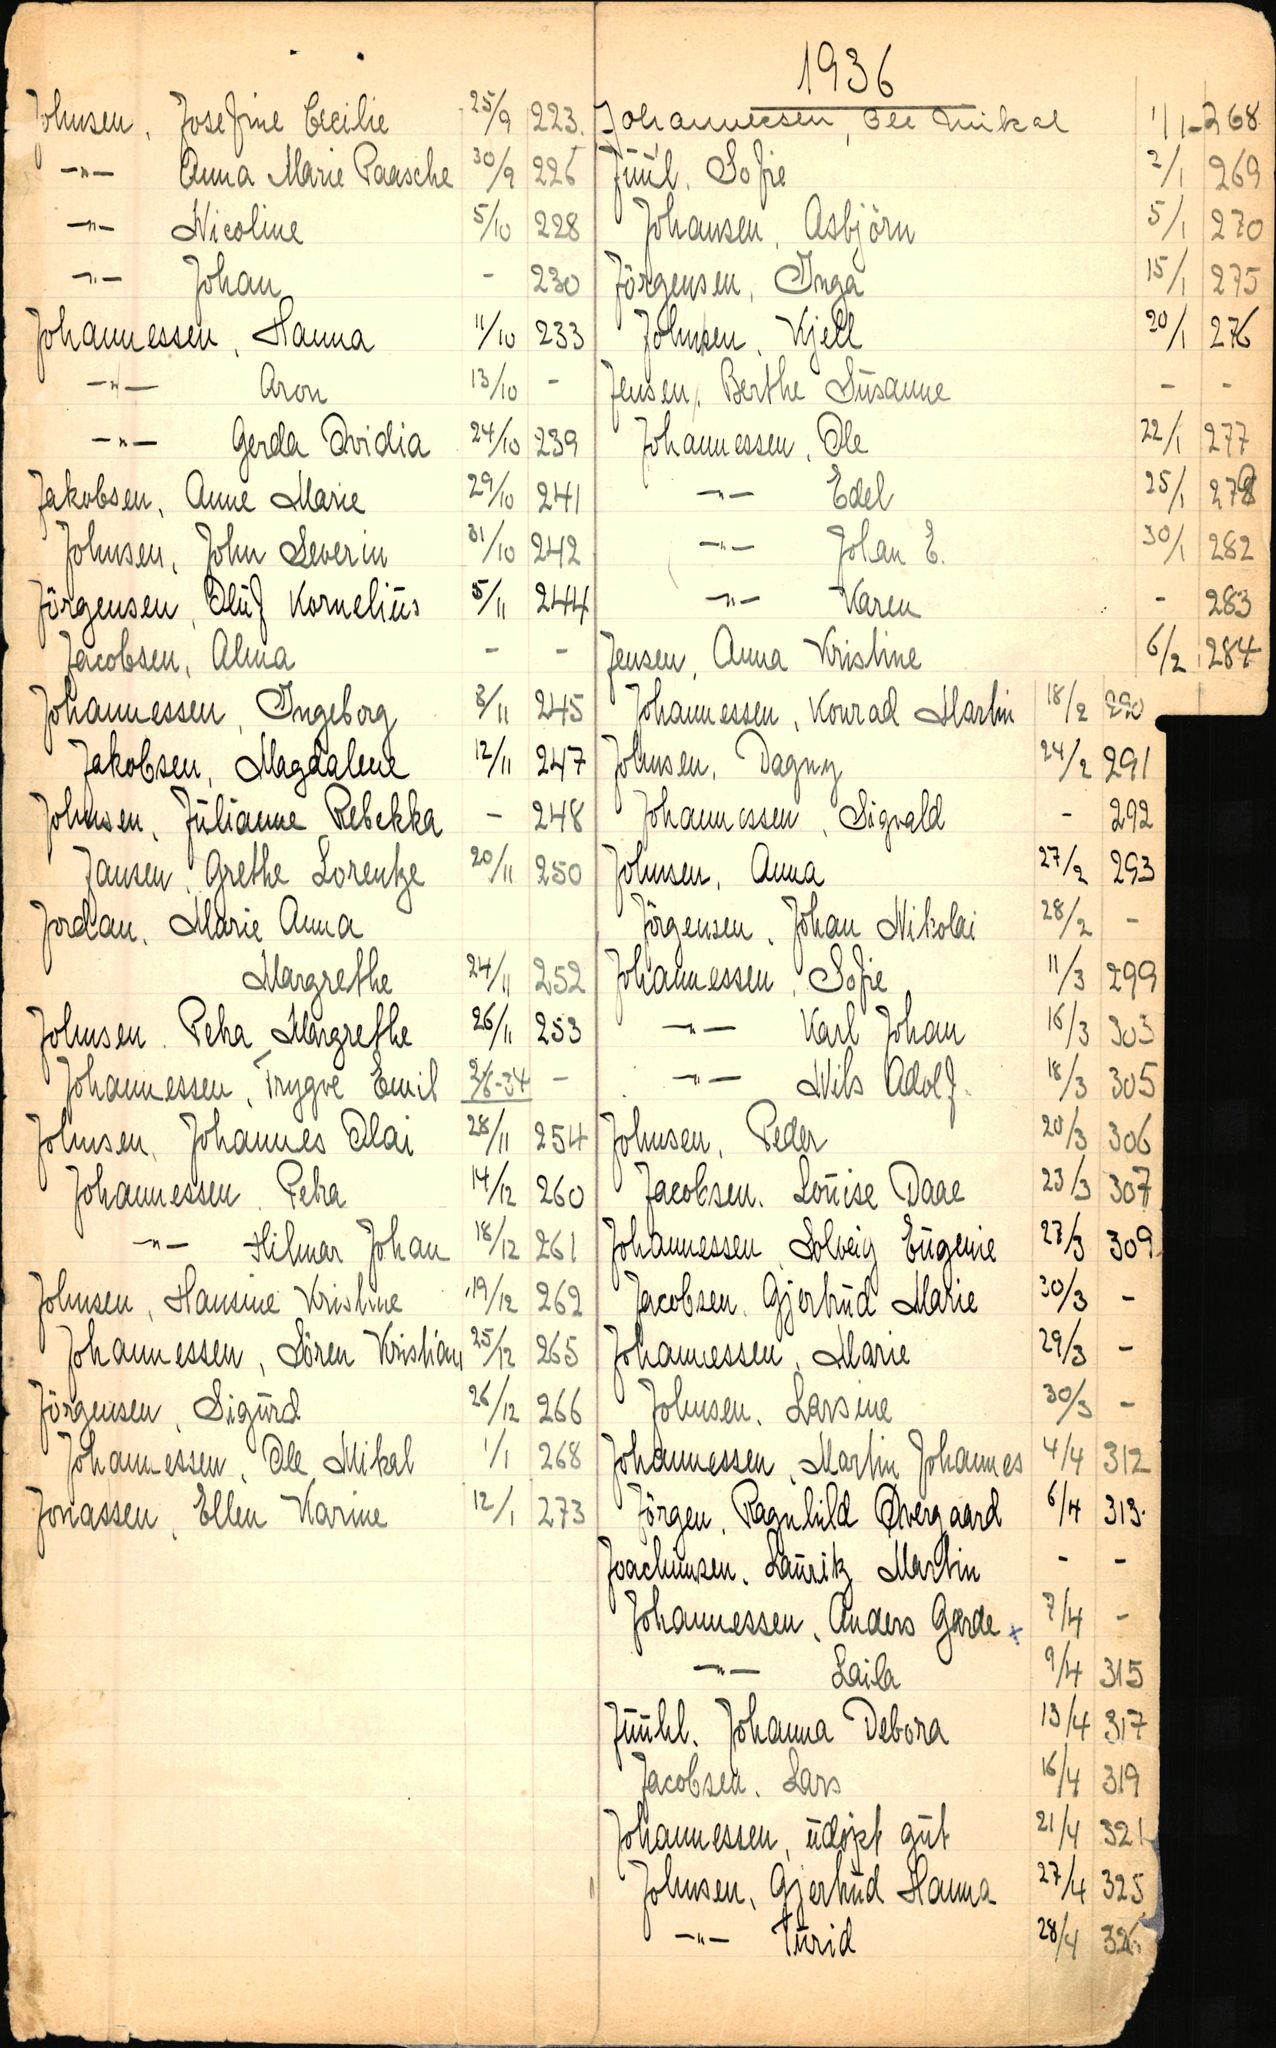 Johnsen, Josefine Cecilie 25/9 223.
-"- Anna Marie Paasche 30/9 226
-"- Nicoline 5/10 228
-"- Johan - 230
Johannessen, Hanna 11/10 233
-"- Aron 13/10 -
-"- Gerda Ovidia 24/10 239
Jakobsen, Anne Marie 29/10 241
Johnsen, John Severin 31/10 242
Jörgensen, Oluf Kornelius 5/11 244
Jacobsen, Alma - -
Johannessen, Ingeborg 8/11 245
Jakobsen, Magdalene 12/11 247
Johnsen, Julianne Rebekka - 248
Jansen, Grethe Lorentze 20/11 250
Jordan, Marie Anna
Margrethe 24/11 252
Johnsen, Petra Margrethe 26/11 253
Johannessen, Trygve Emil -
Johnsen, Johannes Olai 28/11 254
Johannessen, Petra 14/12 260
-"- Hilmar Johan 18/12 261
Johnsen, Hansine Kristine 19/12 262
Johannessen, Sören Kristian 25/12 265
Jörgensen, Sigurd 26/12 266
Johannessen, Ole Mikal 1/1 268
Jonassen, Ellen Karine 12/1 273
1936
Johannessen, Ole Mikal 1/1-268
Juul, Sofie 2/1 269
Johansen, Asbjörn 5/1 270
Jörgensen, Inga 15/1 275
Johnsen, Kjell 20/1 276
Jensen, Berthe Susanne - -
Johannessen, Ole 22/1 277
-"- Edel 25/1 278
-"- Johan E. 30/1 282
-"- Karen - 283
Jensen, Anna Kristine 6/2 284
Johannessen, Konrad Martin 18/2 290
Johnsen, Dagny 24/2 291
Johannessen, Sigvald - 292
Johnsen, Anna 27/2 293
Jörgensen, Johan Nikolai 28/2 -
Johannessen, Sofie 11/3 299
-"- Karl Johan 16/3 303
-"- Nils Adolf 18/3 305
Johnsen, Peder 20/3 306
Jacobsen, Louise Daae 23/3 307
Johannessen, Solveig Eugenie 27/3 309
Jacobsen, Gjertrud Marie 30/3 -
Johannessen, Marie 29/3 -
Johnsen, Larsine 30/3 -
Johannessen, Martin Johannes 4/4 312
Jörgen, Ragnhild Overgaard 6/4 313.
Joachimsen, Lauritz Martin - -
Johannessen, Anders Gærde x 7/4 -
-"- Laila 9/4 315
Juuhl, Johanna Debora 13/4 317
Jacobsen, Lars 16/4 319
Johannessen, udöpt gut 21/4 321
Johnsen, Gjertrud Hanna 27/4 325
-"- Turid 28/4 326